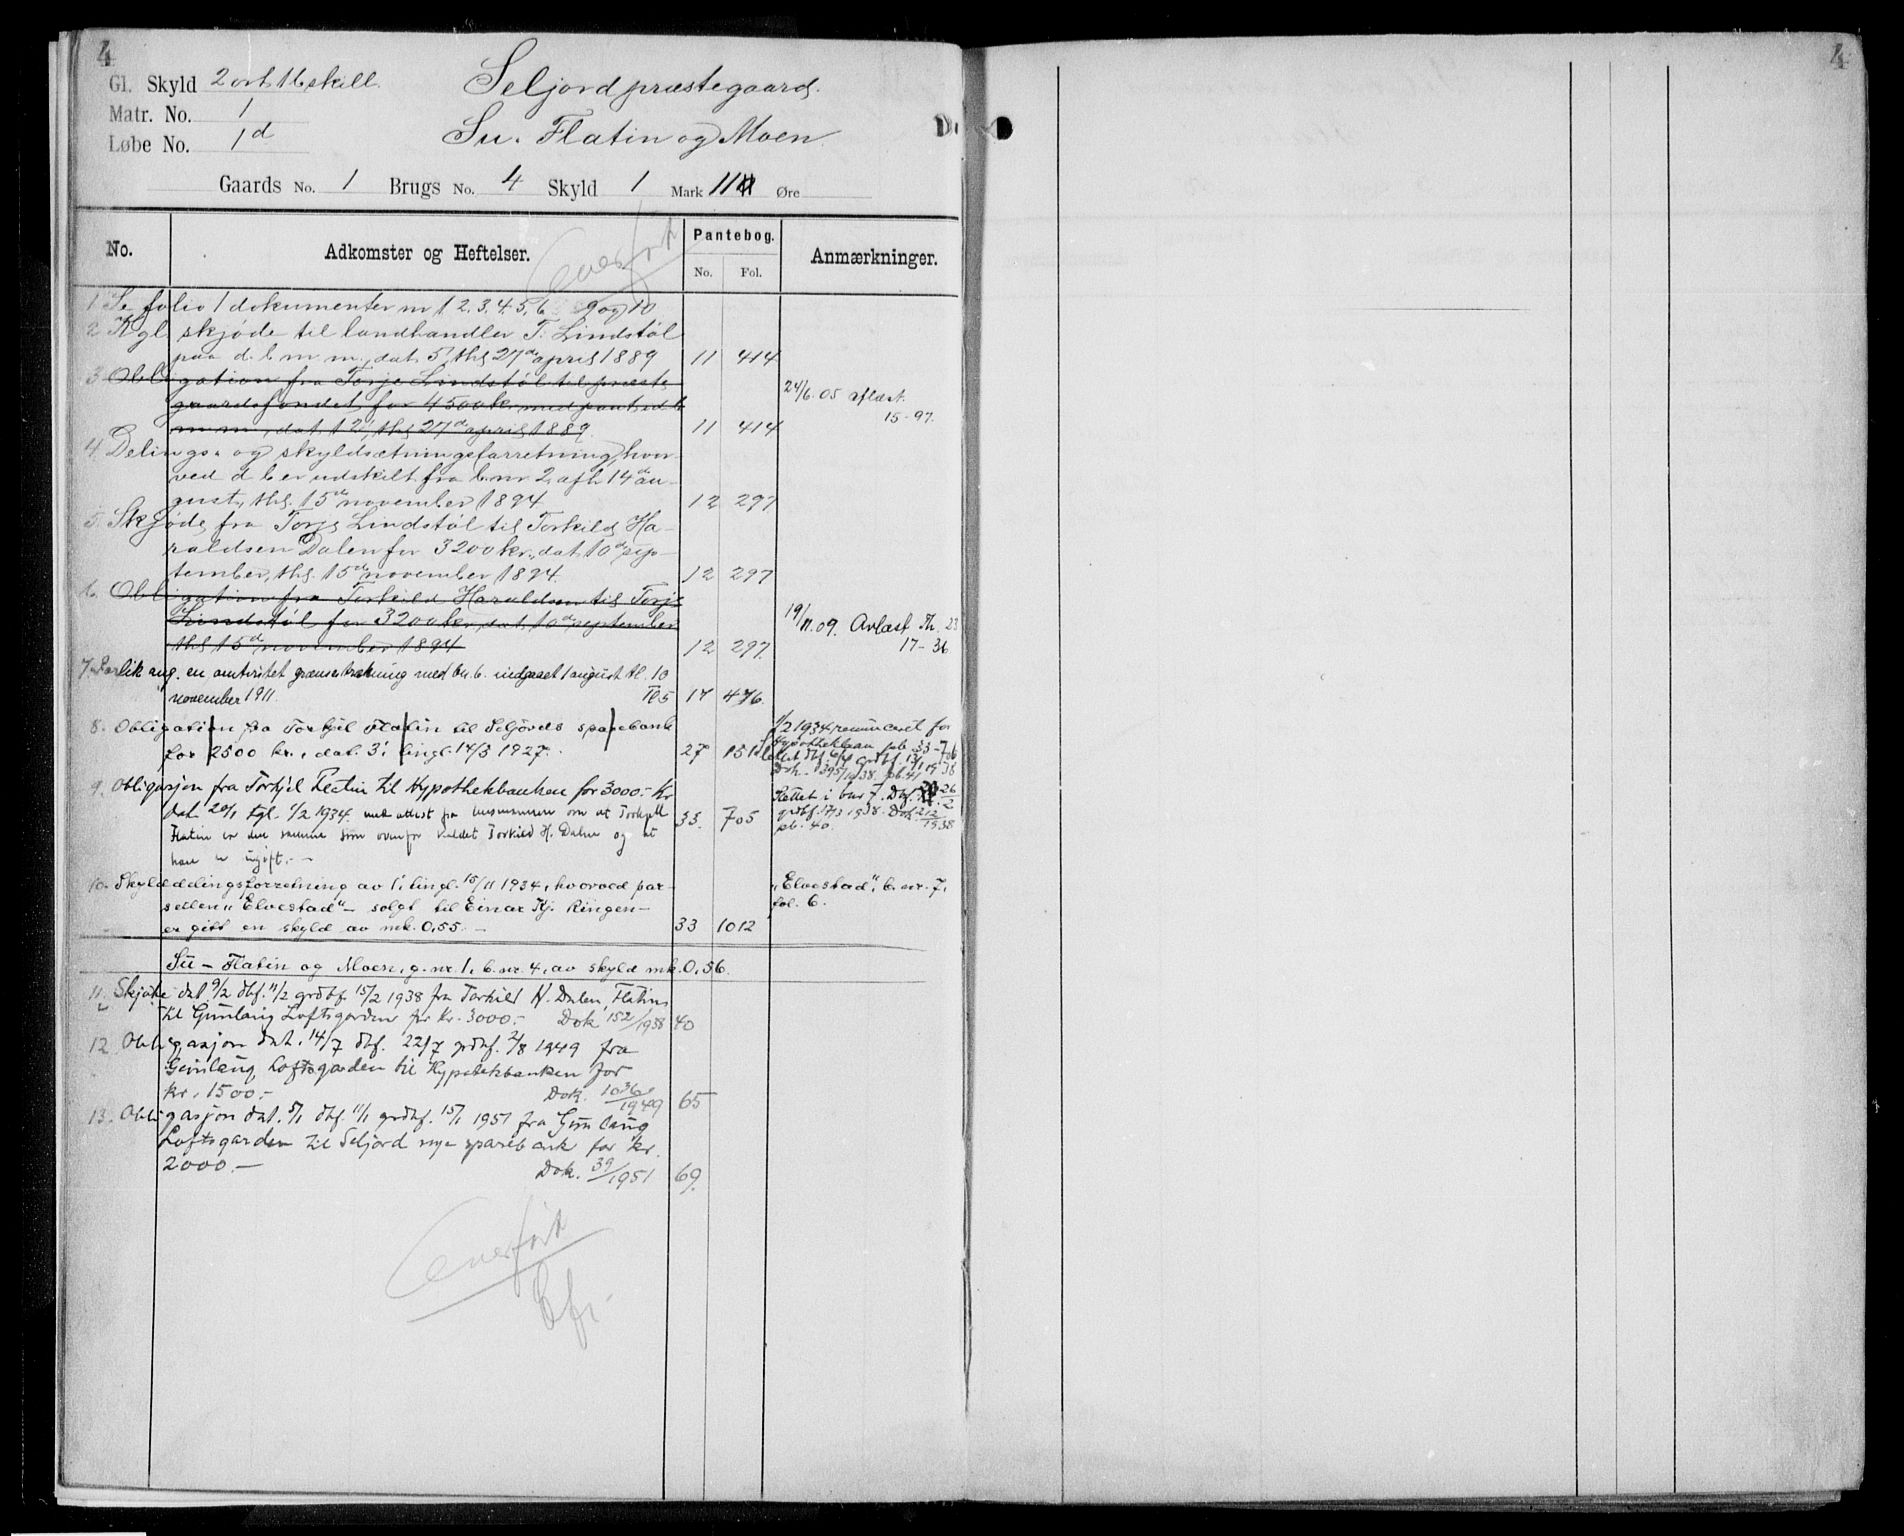 4
Gl. Skyld 2 ort 16 skill. Seljord præstegaard.
Matr. No. 1
Løbe No. 1d Su. Flatin og Moen.
Gaards No. 1 Brugs No. 4 Skyld 1 Mark 11 Øre
No. Adkomster og Heftelser. Pantebog. No. Fol. Anmærkninger.
Overført
1 Se folio 1 dokumenter nr 1 2, 3, 4, 5, 6 9 og 10
2 Kgl. skjøde til landhandler T. Lindstøl
paa d. b. m. m., dat. 5, thl 27de april 1889 11 414
3 Obligation fra Torje Lindstøl til præste-
gaardsfondet for 4500 kr med pant i d. b.
m. m., dat. 12, thl. 27de april 1889. 11 414
24/6.05 aflæst.
15-97.
4. Delings- og skyldsætningsforretning, hvor-
ved d. b. er udskilt fra b. nr. 2, afh. 14de au-
gust, thl. 15de november 1894 12 297
5. Skjøde fra Torje Lindstøl til Torkild Ha-
raldsen Dalen for 3200 kr., dat. 10de sep-
tember, thl. 15de november 1894. 12 297
6. Obligation fra Torkild Haraldsen til Torje
Lindstøl for 3200 kr, dat. 10de september
thl 15de november 1894 12 297.
19/11.09. Avlæst Th. 23
17-36
7. Forlik ang. en omtvistet grænsestrækning med bn. 6. indgaaet 1 august tl. 10
november 1911. Tl 5 17 476.
8. Obligation fra Torkjel Flatin til Seljords sparebank
for 2500 kr., dat. 3; tingl. 14/3 1927. 27 151
1/2 1934 renunceret for
Hypothekbann pb. 33-706
9. Obligasjon fra Torkjel Flatin til Hypothekbanken for 3000.- Kr
dat. 20/1 tgl. 1/2 1934. med attest fra lensmannen om at Torkjell
Flatin er den samme som ovenfor kaldet Torkild H. Dalen og at
han er ugift. - 33. 705
Slettet i bnr 7. Dbf. 26/2
grdbf. 17/3 1938. Dok. 212/1938
pb. 40.
10. Skylddelingsforretning av 1; tingl. 15/11 1934, hvorved par-
sellen „Elvestad" - solgt til Einar Kj. Ringen -
er gitt en skyld av mk. 0,55. - 33 1012
„Elvestad", b. nr. 7,
fol. 6.
Su - Flatin og Moen, g. nr. 1, b. nr. 4, av skyld mk. 0,56.
11. Skjøte dat. 9/2 dbf. 11/2 grdbf. 15/2 1938 fra Torkild H. Dalen Flatin
til Gunlaug Loftsgarden for kr. 3000.- Dok 152/1938 40
12 Obligasjon dat. 14/7 dbf. 22/7 grdbf. 2/8 1949 fra
Gunlaug Loftsgarden til Hypotekbanken for
kr. 1500.- Dok. 1036/1949 65
13. Obligasjon dat. 5/1 dbf. 11/1 grdbf. 15/1 1951 fra Gunlaug
Loftsgarden til Seljord nye sparebank for kr.
2000.- Dok. 39/1951 69.
Overført
4